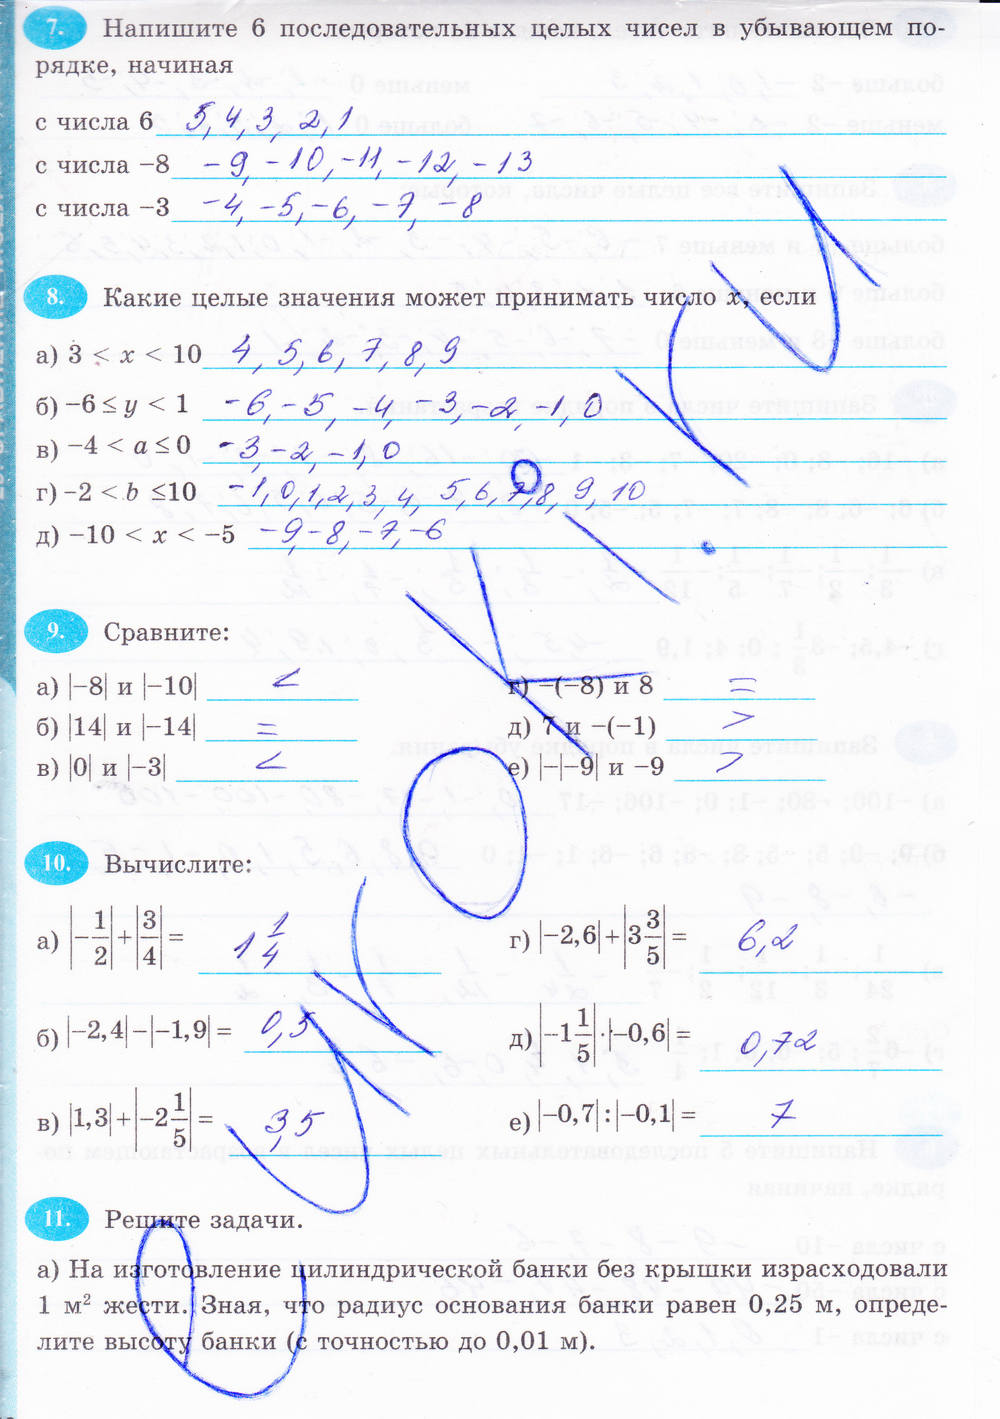 7. Напишите 6 последовательных целых чисел в убывающем по-
рядке, начиная
с числа 6 5, 4, 3, 2, 1
с числа −8 −9, −10, −11, −12, −13
с числа −3 −4, −5, −6, −7, −8
8. Какие целые значения может принимать число x, если
а) 3 < x < 10 4, 5, 6, 7, 8, 9
б) −6 ≤ y < 1 −6, −5, −4, −3, −2, −1, 0
в) −4 < a ≤ 0 −3, −2, −1, 0
г) −2 < b ≤10 −1, 0, 1, 2, 3, 4, 5, 6, 7, 8, 9, 10
д) −10 < x < −5 −9, −8, −7, −6
9. Сравните:
а) |−8| и |−10| < г) −(−8) и 8 =
б) |14| и |−14| = д) 7 и −(−1) >
в) |0| и |−3| < е) |−|−9| и −9 >
10. Вычислите:
а) |−1/2| + |3/4| = 1 1/4 г) |−2,6| + |3 3/5| = 6,2
б) |−2,4| − |−1,9| = 0,5 д) |−1 1/5| · |−0,6| = 0,72
в) |1,3| + |−2 1/5| = 3,5 е) |−0,7| : |−0,1| = 7
11. Решите задачи.
а) На изготовление цилиндрической банки без крышки израсходовали
1 м² жести. Зная, что радиус основания банки равен 0,25 м, опреде-
лите высоту банки (с точностью до 0,01 м).